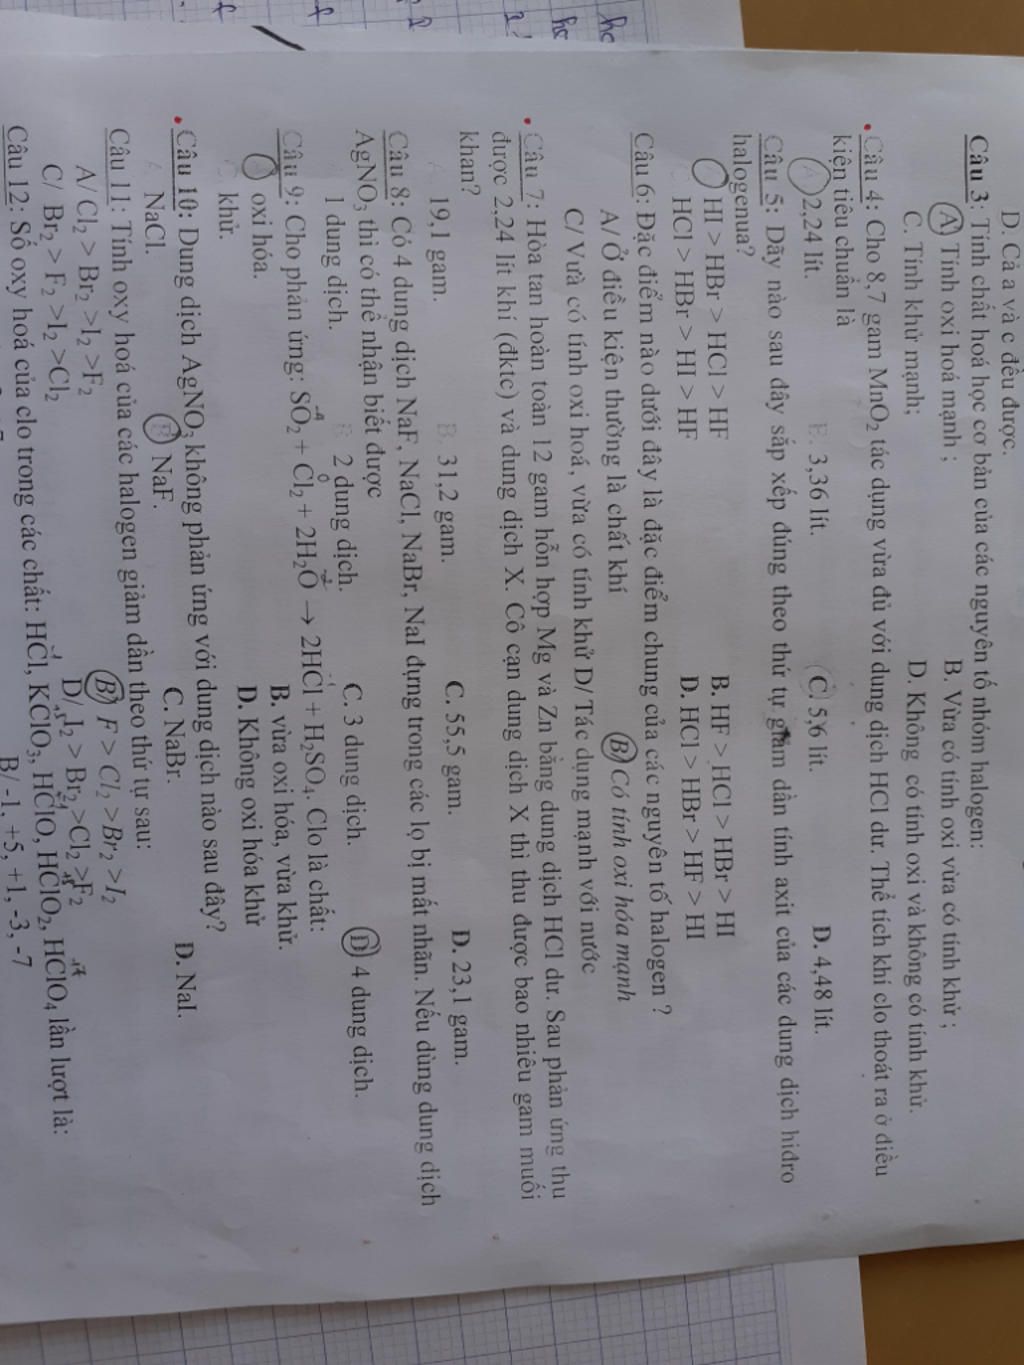 D. Cả a và c đều được.
Câu 3: Tính chất hoá học cơ bản của các nguyên tố nhóm halogen:
A. Tính oxi hoá mạnh ; B. Vừa có tính oxi vừa có tính khử ;
C. Tính khử mạnh; D. Không có tính oxi và không có tính khử.
Câu 4: Cho 8,7 gam MnO₂ tác dụng vừa đủ với dung dịch HCl dư. Thể tích khí clo thoát ra ở điều
kiện tiêu chuẩn là
A. 2,24 lít. B. 3,36 lít. C. 5,6 lít. D. 4,48 lít.
Câu 5: Dãy nào sau đây sắp xếp đúng theo thứ tự giảm dần tính axit của các dung dịch hiđro
halogenua?
HI > HBr > HCl > HF B. HF > HCl > HBr > HI
HCl > HBr > HI > HF D. HCl > HBr > HF > HI
Câu 6: Đặc điểm nào dưới đây là đặc điểm chung của các nguyên tố halogen ?
A/ Ở điều kiện thường là chất khí B/ Có tính oxi hóa mạnh
C/ Vừa có tính oxi hoá, vừa có tính khử D/ Tác dụng mạnh với nước
Câu 7: Hòa tan hoàn toàn 12 gam hỗn hợp Mg và Zn bằng dung dịch HCl dư. Sau phản ứng thu
được 2,24 lít khí (đktc) và dung dịch X. Cô cạn dung dịch X thì thu được bao nhiêu gam muối
khan?
A. 19,1 gam. B. 31,2 gam. C. 55,5 gam. D. 23,1 gam.
Câu 8: Có 4 dung dịch NaF, NaCl, NaBr, NaI đựng trong các lọ bị mất nhãn. Nếu dùng dung dịch
AgNO₃ thì có thể nhận biết được
1 dung dịch. B. 2 dung dịch. C. 3 dung dịch. D. 4 dung dịch.
Câu 9: Cho phản ứng: SO₂ + Cl₂ + 2H₂O → 2HCl + H₂SO₄. Clo là chất:
A. oxi hóa. B. vừa oxi hóa, vừa khử.
C. khử. D. Không oxi hóa khử
Câu 10: Dung dịch AgNO₃ không phản ứng với dung dịch nào sau đây?
A. NaCl. B. NaF. C. NaBr. D. NaI.
Câu 11: Tính oxy hoá của các halogen giảm dần theo thứ tự sau:
A/ Cl₂ > Br₂ >I₂ >F₂ B/ F > Cl₂ >Br₂ >I₂
C/ Br₂ > F₂ >I₂ >Cl₂ D/ I₂ > Br₂ >Cl₂ >F₂
Câu 12: Số oxy hoá của clo trong các chất: HCl, KClO₃, HClO, HClO₂, HClO₄ lần lượt là:
B/ -1, +5, +1, -3, -7